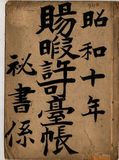 昭和十年
賜暇許臺帳
祕書係